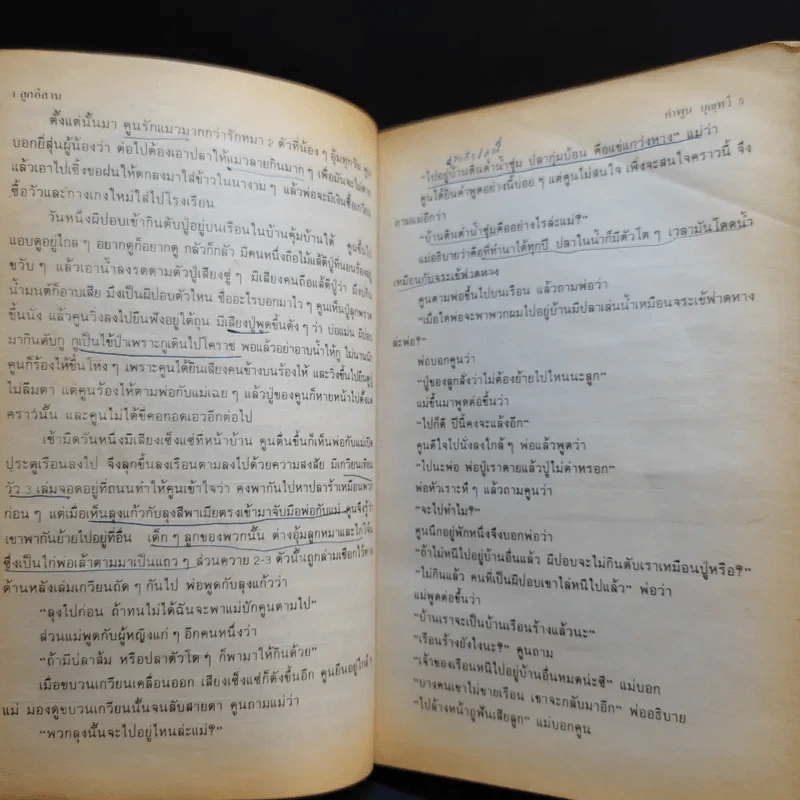 4 ลูกอีสาน
ตั้งแต่นั้นมา คูนรักแมวมากกว่ารักหมา 2 ตัวที่น้อง ๆ อุ้มทุกวัน
บอกยี่สุ่นผู้น้องว่า ต่อไปต้องเอาปลาให้แมวลายกินมาก ๆ เพื่อมันจะไม่
แล้วเอาไปเซิ้งขอฝนให้ตกลงมาใส่ข้าวในนางาม ๆ แล้วพ่อจะมีเงินซื้อเกวียน
ซื้อวัวและกางเกงใหม่ใส่ไปโรงเรียน
วันหนึ่งผีปอบเข้ากินตับปู่อยู่บนเรือนในบ้านคุ้มบ้านใต้ คูนขึ้นไป
แอบดูอยู่ไกล ๆ อยากดูก็อยากดู กลัวก็กลัว มีคนหนึ่งถือไม้แส้ตีปู่ที่นอนร้อง
ขวับ ๆ แล้วเอาน้ำลงรดตามตัวปู่เสียงซู่ ๆ มีเสียงคนถือแส้ตีปู่ว่า มึง
น้ำมนต์ก็อาบเสีย มึงเป็นผีปอบตัวไหน ชื่ออะไรบอกมาไว ๆ คูนเห็นปู่ลุก
ขึ้นนั่ง แล้วคูนวิ่งลงไปยืนฟังอยู่ใต้ถุน มีเสียงปู่พูดขึ้นดัง ๆ ว่า บ่อแม่น ผีปอบ
มากินตับกู กูเป็นไข้ป่าเพราะกูเดินไปโคราช พอแล้วอย่าอาบน้ำให้กู ไม่นานนัก
คูนก็ร้องไห้ขึ้นโห่ง ๆ เพราะคูนได้ยินเสียงคนข้างบนร้องไห้ และวิ่งขึ้นไป
ไม่ลืมตา แต่คูนร้องไห้ตามพ่อกับแม่เฉย ๆ แล้วปู่ของคูนก็หายหน้าไปตั้งแต่
คราวนั้น และคูนไม่ได้ขี่คอกอดเอวอีกต่อไป
เช้ามืดวันหนึ่งมีเสียงเซ็งแซ่ที่หน้าบ้าน คูนตื่นขึ้นก็เห็นพ่อกับแม่เปิด
ประตูเรือนลงไป จึงลุกขึ้นลงเรือนตามลงไปด้วยความสงสัย มีเกวียนเทียม
วัว 3 เล่มจอดอยู่ที่ถนนทำให้คูนเข้าใจว่า คงพากันไปหาปลาร้าเหมือน
ก่อน ๆ แต่เมื่อเห็นลุงแก้วกับลุงสีพาเมียตรงเข้ามาจับมือพ่อกับแม่ คูนจึงรู้ว่า
เขาพากันย้ายไปอยู่ที่อื่น เด็ก ๆ ลูกของพวกนั้น ต่างอุ้มลูกหมาและไก่
ซึ่งเป็นไก่พ่อเล้าตามมาเป็นแถว ๆ ส่วนควาย 2-3 ตัวนั้นถูกล่ามเชือกไว้
ด้านหลังเล่มเกวียนถัด ๆ กันไป พ่อพูดกับลุงแก้วว่า
“ลุงไปก่อน ถ้าทนไม่ได้ฉันจะพาแม่บักคูนตามไป”
ส่วนแม่พูดกับผู้หญิงแก่ ๆ อีกคนหนึ่งว่า
“ถ้ามีปลาส้ม หรือปลาตัวโต ๆ ก็พามาให้กินด้วย”
เมื่อขบวนเกวียนเคลื่อนออก เสียงเซ็งแซ่ก็ดังขึ้นอีก คูนยืนอยู่ใกล้ ๆ
แม่ มองดูขบวนเกวียนนั้นจนลับสายตา คูนถามแม่ว่า
“พวกลุงนั้นจะไปอยู่ไหนล่ะแม่?”
คำพูน บุญทวี 5
“ไปอยู่บ้านดินดำน้ำชุ่ม ปลากุ่มบ้อน คือแข่แกว่งหาง” แม่ว่า
คูนได้ยินคำพูดอย่างนี้บ่อย ๆ แต่คูนไม่สนใจ เพิ่งจะสนใจคราวนี้ จึง
ถามแม่อีกว่า
“บ้านดินดำน้ำชุ่มคืออย่างไรล่ะแม่?”
แม่อธิบายว่าคือที่ทำนาได้ทุกปี ปลาในน้ำก็มีตัวโต ๆ เวลามันโดดน้ำ
เหมือนกับจระเข้ฟาดหาง
คูนตามพ่อขึ้นไปบนเรือน แล้วถามพ่อว่า
“เมื่อใดพ่อจะพาพวกผมไปอยู่บ้านมีปลาเล่นน้ำเหมือนจระเข้ฟาดหาง
ล่ะพ่อ?”
พ่อบอกคูนว่า
“ปู่ของลูกสั่งว่าไม่ต้องย้ายไปไหนนะลูก”
แม่ขึ้นมาพูดต่อขึ้นว่า
“ไปก็ดี ปีนี้คงจะแล้งอีก”
คูนดีใจไปนั่งลงใกล้ ๆ พ่อแล้วพูดว่า
“ไปนะพ่อ พ่อปู่เราตายแล้วปู่ไม่ด่าหรอก”
พ่อหัวเราะหึ ๆ แล้วถามคูนว่า
“จะไปทำไม?”
คูนนึกอยู่พักหนึ่งจึงบอกพ่อว่า
“ถ้าไม่หนีไปอยู่บ้านอื่นแล้ว ผีปอบจะไม่กินตับเราเหมือนปู่หรือ?”
“ไม่กินแล้ว คนที่เป็นผีปอบเขาไล่หนีไปแล้ว” พ่อว่า
แม่พูดต่อขึ้นว่า
“บ้านเราจะเป็นบ้านเรือนร้างแล้วนะ”
“เรือนร้างยังไงนะ?” คูนถาม
“เจ้าของเรือนหนีไปอยู่บ้านอื่นหมดน่ะซี” แม่บอก
“บางคนเขาไม่ขายเรือน เขาจะกลับมาอีก” พ่ออธิบาย
“ไปล้างหน้าถูฟันเสียลูก” แม่บอกคูน